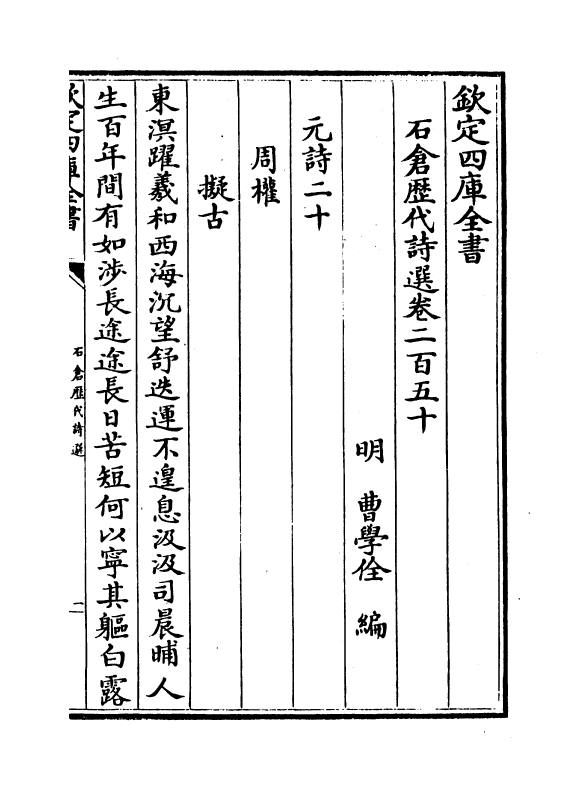 欽定四庫全書
石倉歷代詩選卷二百五十
明 曹學佺 編
元詩二十
周權
擬古
東溟躍羲和西海沉望舒迭運不遑息汲汲司晨晡人
生百年間有如涉長途途長日苦短何以寧其軀白露
欽定四庫全書
石倉歷代詩選
一